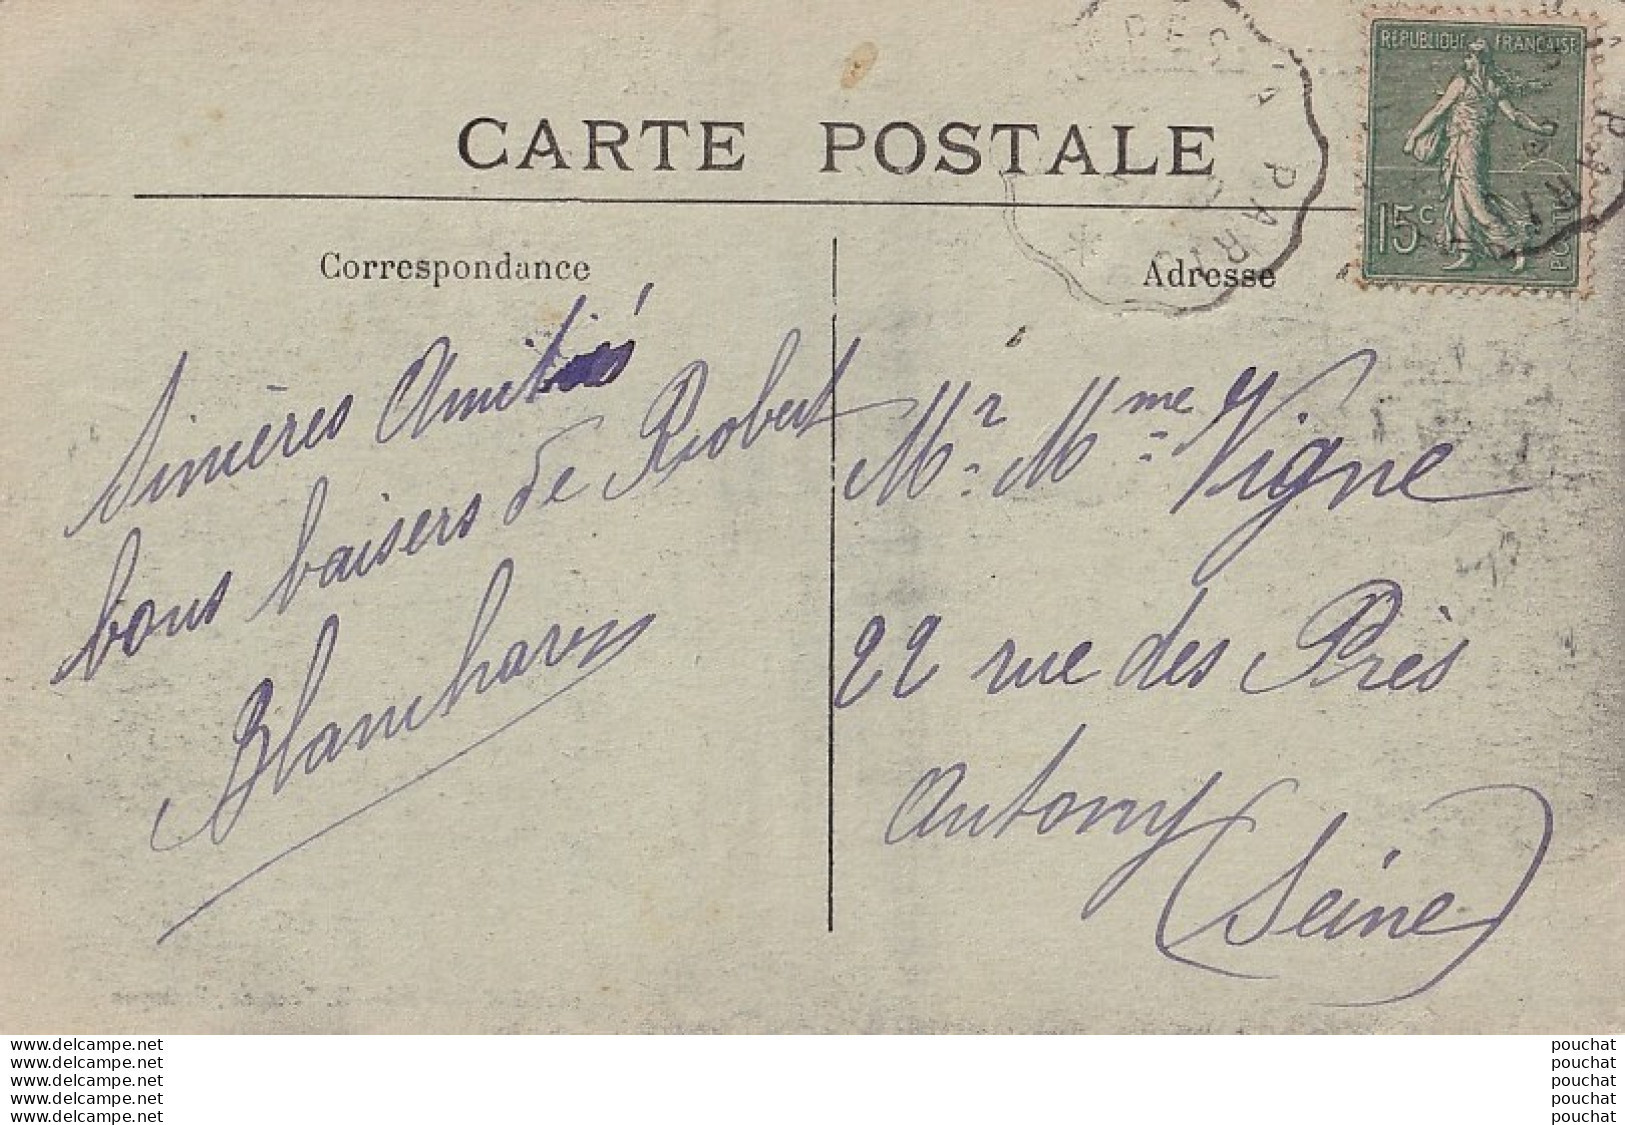 CARTE POSTALE
Correspondance
Adresse
REPUBLIQUE FRANÇAISE
15c
POSTES
A PARIS
Sincères Amitiés
bons baisers de Robert
Blanchard
Mr. Mme Vigne
22 rue des Près
Antony
(Seine)
www.delcampe.net
www.delcampe.net
www.delcampe.net
www.delcampe.net
www.delcampe.net
pouchat
pouchat
pouchat
pouchat
pouchat